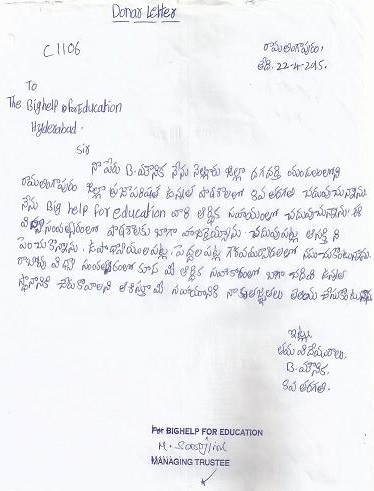 Donar Letter
C1106
రామలింగాపురం,
తేది. 22-4-2015.
To
The Bighelp for Education
Hyderabad.
Sir
నా పేరు B. మౌనిక నేను నెల్లూరు జిల్లా దగదర్తి మండలంలోని
రామలింగాపురం జిల్లా ప్రజాపరిషత్ ఉన్నత పాఠశాలలో 8వ తరగతి చదువుచున్నాను.
నేను Big help for education వారి ఆర్థిక సహాయంలో చదువుచున్నాను. ఈ
విద్యాసంవత్సరంలో పాఠశాలకు బాగా హాజరయ్యాను. చదువుపట్ల ఆసక్తి ని
పెంచుకొన్నాను. ఉపాధ్యాయులపట్ల, పెద్దలపట్ల గౌరవమర్యాదలలో నడుచుకుంటున్నాను.
రాబోవు విద్యా సంవత్సరంలో కూడ మీ ఆర్థిక సహకారంలో బాగా చదివి ఉన్నత
స్థానానికి చేరుకోవాలని ఆశిస్తూ మీ సహాయానికి నా కృతజ్ఞతలు తెలియ చేసుకుంటున్నాను.
ఇట్లు
తమ విధేయురాలు,
B. మౌనిక,
8వ తరగతి.
For BIGHELP FOR EDUCATION
MANAGING TRUSTEE